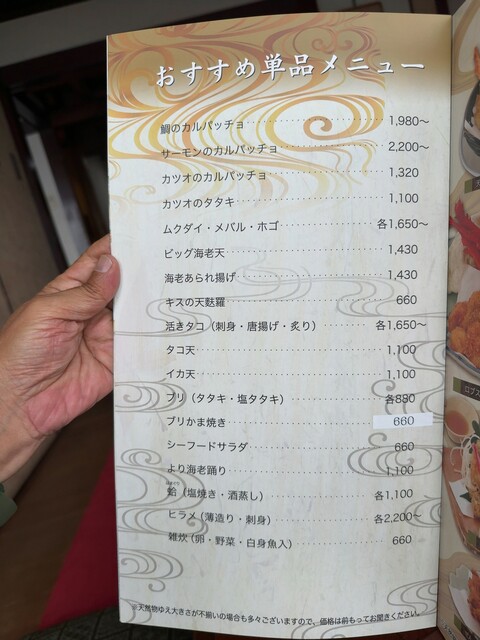 おすすめ単品メニュー
鯛のカルパッチョ 1,980～
サーモンのカルパッチョ 2,200～
カツオのカルパッチョ 1,320
カツオのタタキ 1,100
ムクダイ・メバル・ホゴ 各1,650～
ビッグ海老天 1,430
海老あられ揚げ 1,430
キスの天麩羅 660
活きタコ（刺身・唐揚げ・炙り） 各1,650～
タコ天 1,100
イカ天 1,100
ブリ（タタキ・塩タタキ） 各880
ブリかま焼き 660
シーフードサラダ 660
より海老踊り 1,100
蛤（塩焼き・酒蒸し） 各1,100
ヒラメ（薄造り・刺身） 各2,200～
雑炊（卵・野菜・白身魚入） 660
※天然物ゆえ大きさが不揃いの場合も多々ございますので、価格は前もってお聞きください。